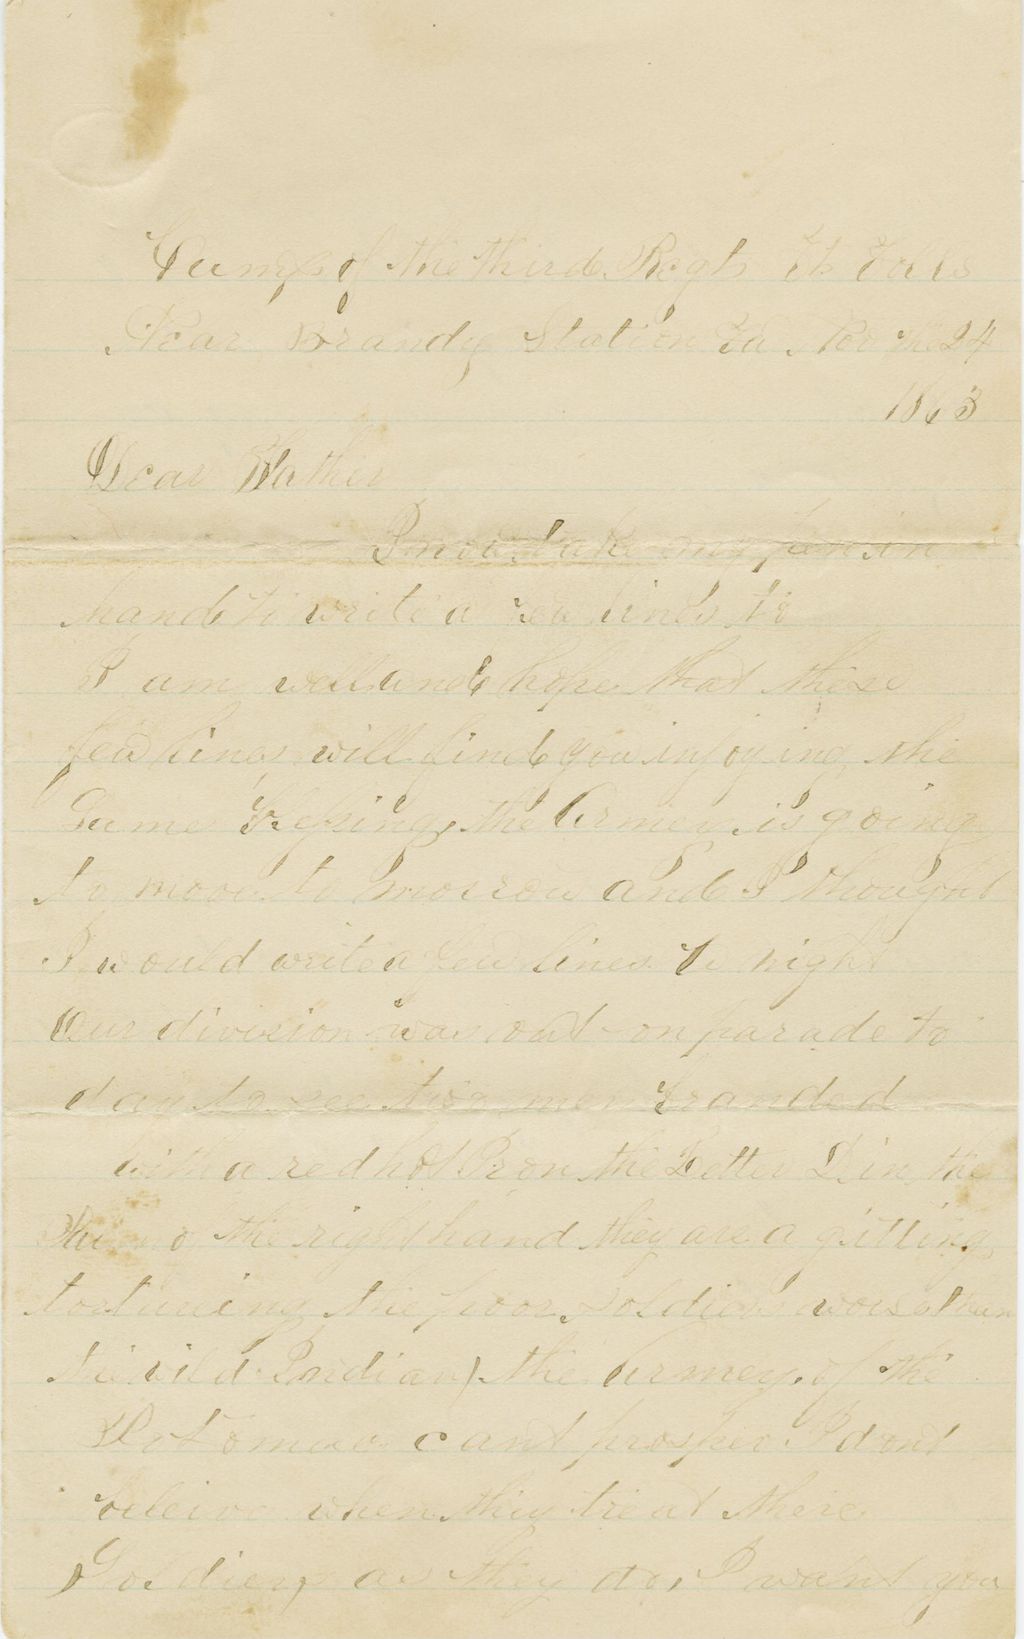 Camp of the third Regt Vt Vols
Near Brandy Station Va Nov the 24
1863
Dear Father
I now take my pen in
hand to write a few lines to
I am well and hope that these
few lines will find you injoying the
Same Blessing, the Armey is going
to move to morrow and I thought
I would write a few lines to night
Our division was out on parade to
day to see two men branded
with a red hot Iron the Letter D in the
of the right hand they are a gitting
torturing the poor soldier worse than
the wild Indian, the Armey of the
Potomac cant prosper I dont
beleive when they treat there
Soldiers as they do, I want you